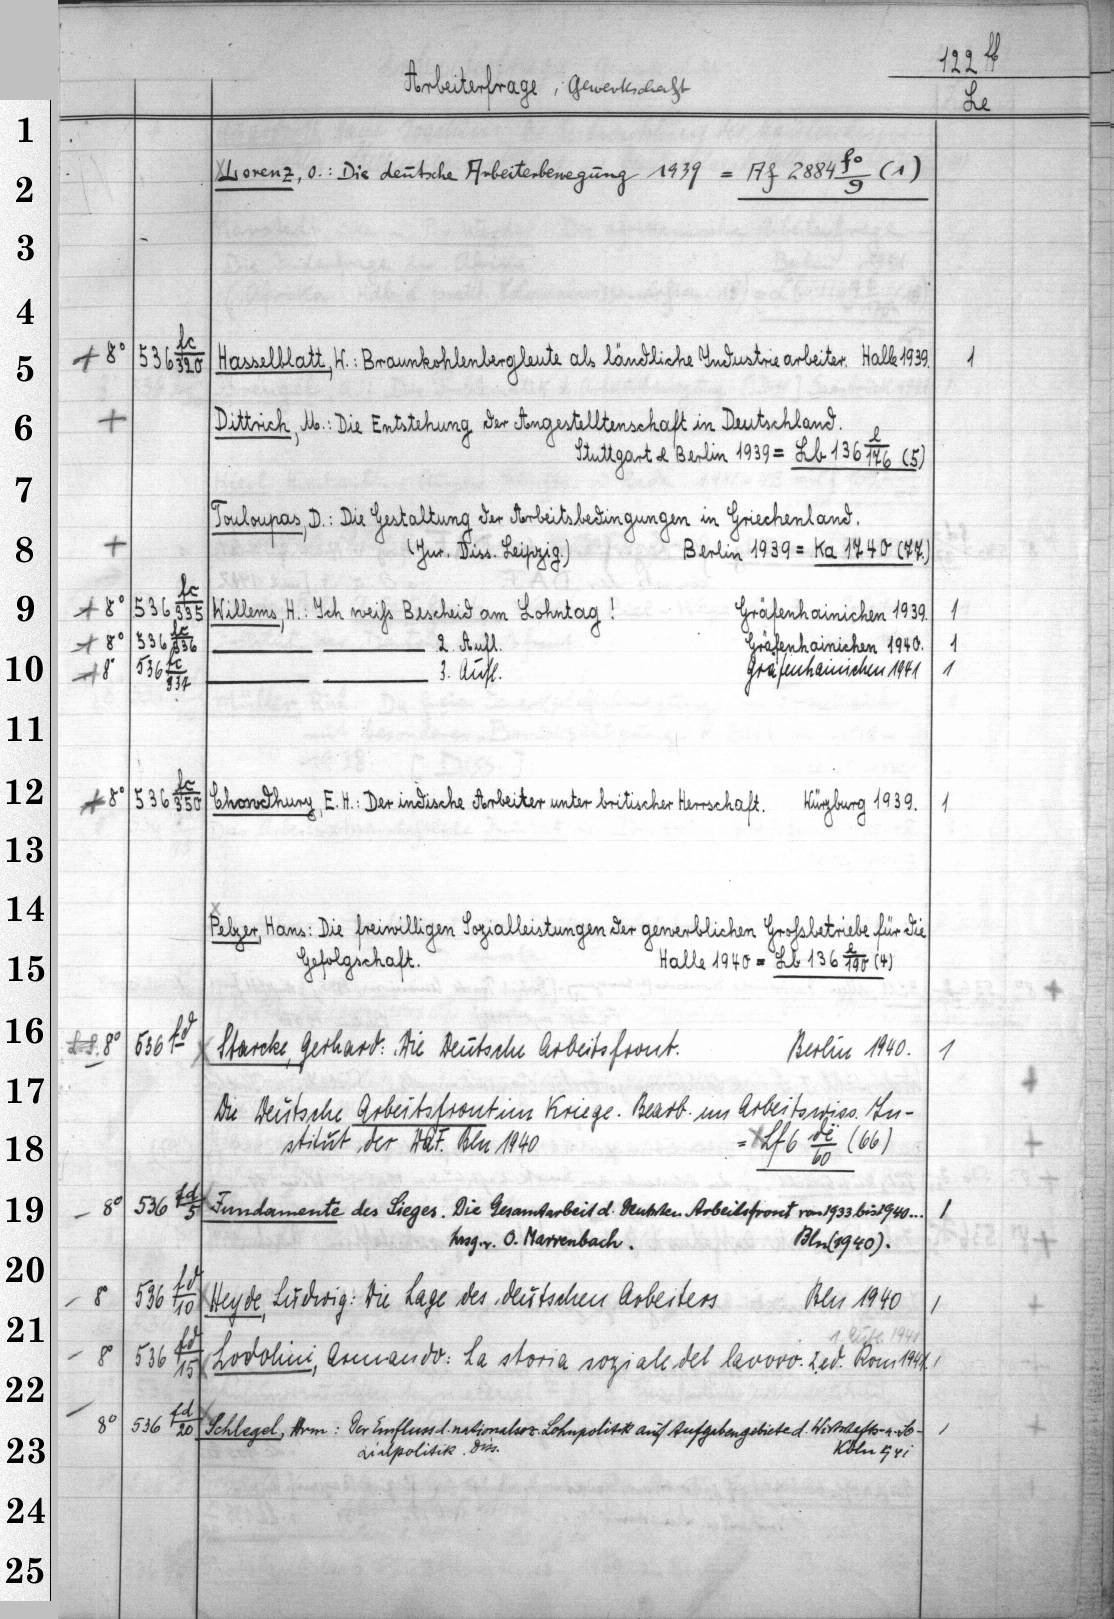 122 ff
Arbeiterfrage, Gewerkschaft
Le
1
2 Lorenz, O.: Die deutsche Arbeiterbewegung 1939 = Af 2884 fo/9 (1)
3
4
5 + 8° 536 fc/320 Hasselblatt, W.: Braunkohlenbergleute als ländliche Industriearbeiter. Halle 1939. 1
6 + Dittrich, M.: Die Entstehung der Angestelltenschaft in Deutschland.
Stuttgart & Berlin 1939 = Lb 136 l/176 (5)
7
Touloupas, D.: Die Gestaltung der Arbeitsbedingungen in Griechenland.
8 + (Jur. Diss. Leipzig.) Berlin 1939 = Ka 1740 (77.)
9 + 8° 536 fc/335 Willems, H.: Ich weiß Bescheid am Lohntag! Gräfenhainichen 1939. 1
+ 8° 536 fc/336 — — 2. Aufl. Gräfenhainichen 1940. 1
10 + 8° 536 fc/337 — — 3. Aufl. Gräfenhainichen 1941 1
11
12 + 8° 536 fc/350 Chowdhury, E. H.: Der indische Arbeiter unter britischer Herrschaft. Würzburg 1939. 1
13
14
Pelzer, Hans: Die freiwilligen Sozialleistungen der gewerblichen Großbetriebe für die
15 Gefolgschaft. Halle 1940 = Lb 136 l/190 (4)
16 8° 536 fd/1 Starcke, Gerhard: Die Deutsche Arbeitsfront. Berlin 1940. 1
17
Die Deutsche Arbeitsfront im Kriege. Bearb. im Arbeitswiss. In-
18 stitut der DAF. Bln 1940 = Lf 6 de/60 (66)
19 – 8° 536 fd/5 Fundamente des Sieges. Die Gesamtarbeit d. Deutschen Arbeitsfront von 1933 bis 1940... 1
hrsg. v. O. Marrenbach. Bln (1940).
20
– 8° 536 fd/10 Heyde, Ludwig: Die Lage des deutschen Arbeiters Bln 1940 1
21
– 8° 536 fd/15 Lodolini, Armando: La storia soziale del lavoro. 2. ed. Rom 1941. 1
22
– 8° 536 fd/20 Schlegel, Arm: Der Einfluss d. nationalsoz. Lohnpolitik auf Aufgabengebiete d. Wirtschafts- u. So-
23 zialpolitik. Diss. Köln 1941
24
25